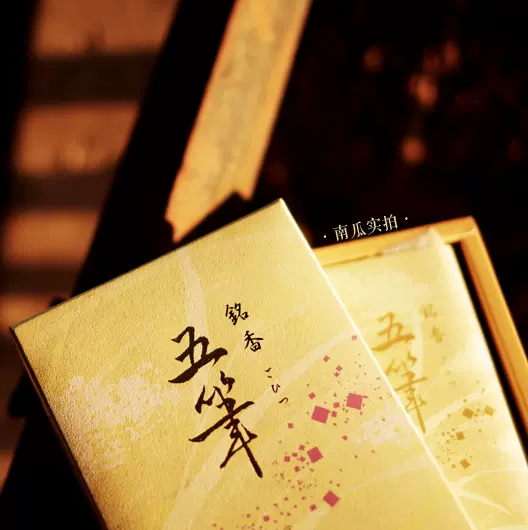 ·南瓜实拍·
銘香
五筆
ごひつ
銘香
五筆